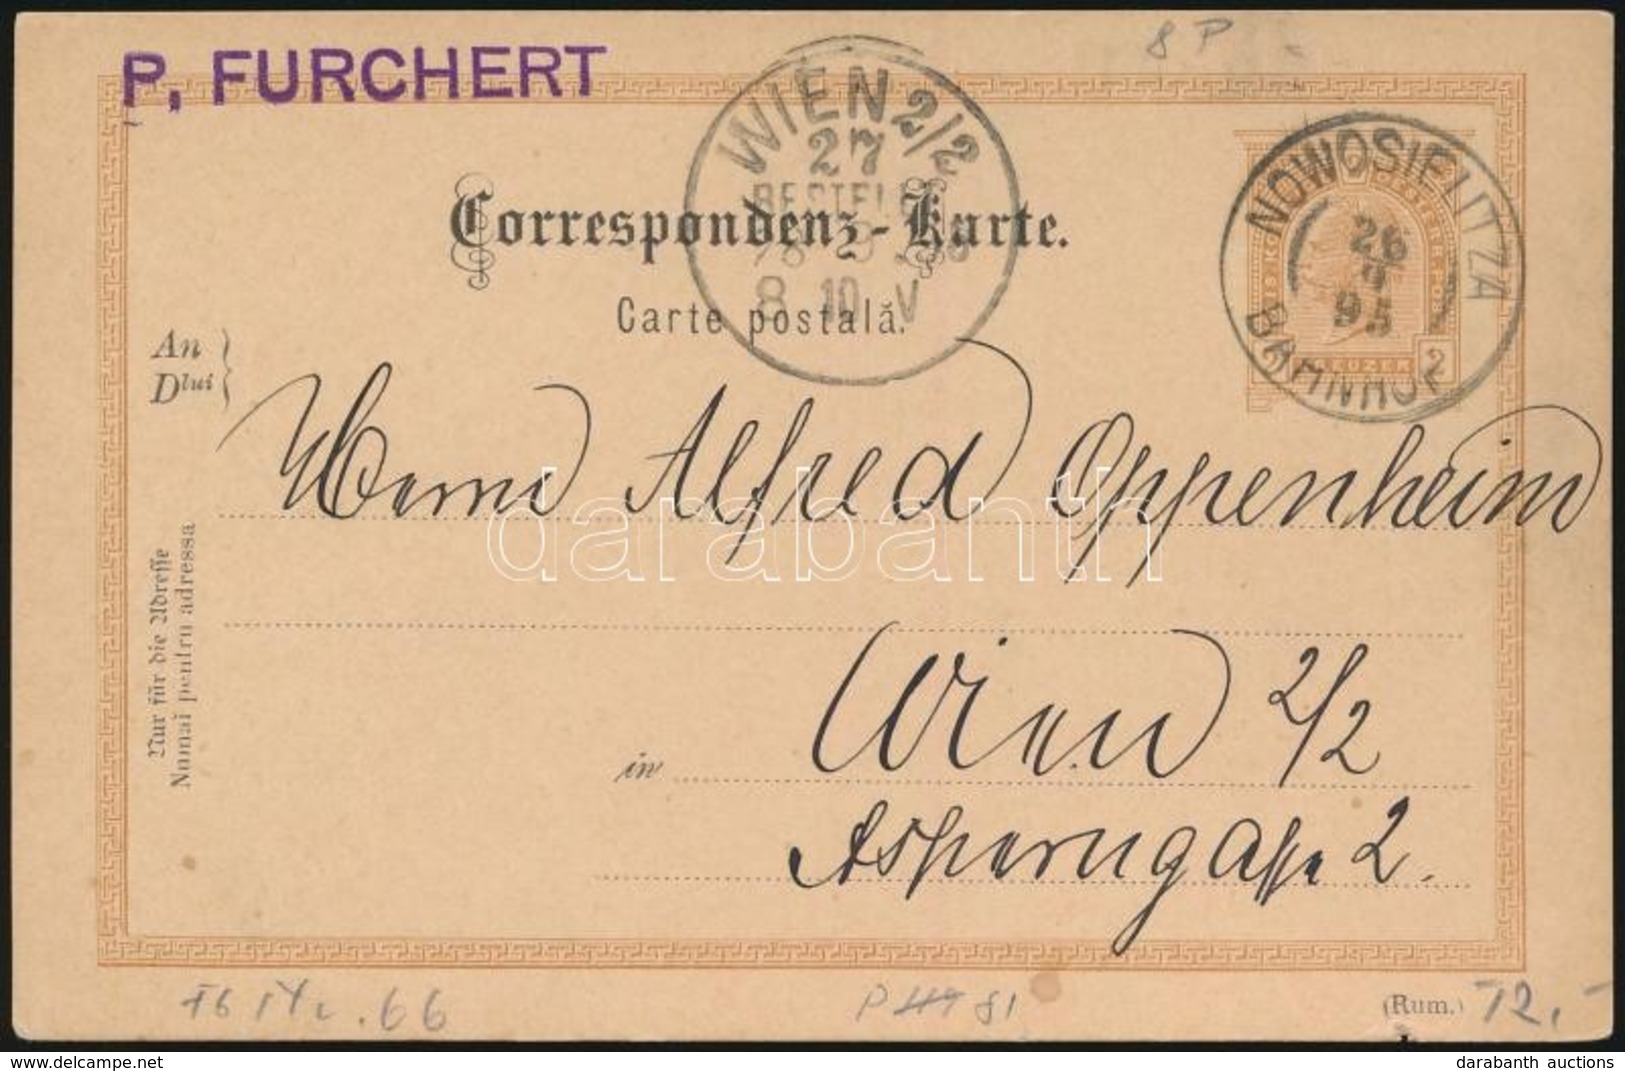 8 P
P. FURCHERT
WIEN 2/2
27
BESTELLT
8 10 V
NOWOSIELITZA
26
95
BAHNHOF
2
Correspondenz-Karte.
Carte postală.
An
Dlui
Herrn Alfred Oppenheim
darabanth
Nur für die Adresse
Numai pentru adressa
in
Wien 2/2
Asperngasse 2.
66
81
(Rum.)
72,-
darabanth auctions